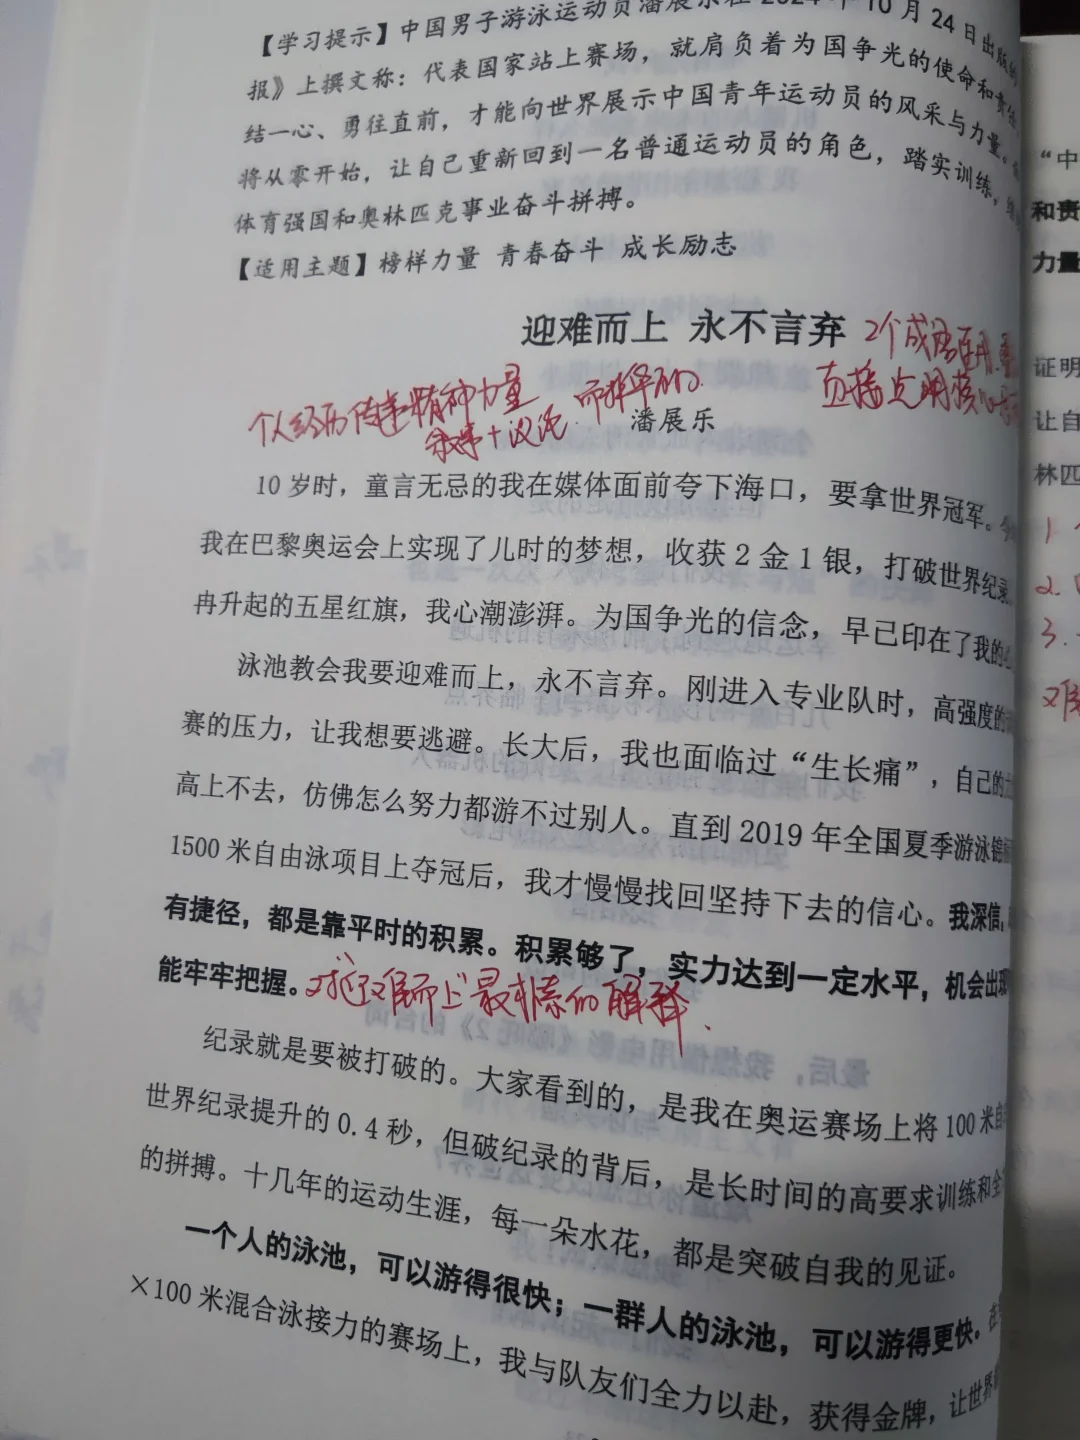 【学习提示】中国男子游泳运动员潘展乐在 2024 年 10 月 24 日出版的
报》上撰文称：代表国家站上赛场，就肩负着为国争光的使命和责任，
结一心、勇往直前，才能向世界展示中国青年运动员的风采与力量。
将从零开始，让自己重新回到一名普通运动员的角色，踏实训练，
体育强国和奥林匹克事业奋斗拼搏。
【适用主题】榜样力量 青春奋斗 成长励志
迎难而上 永不言弃
2个成语连用
直接点明核心
个人经历 传递精神力量 而非华丽的
叙事+议论
潘展乐
10 岁时，童言无忌的我在媒体面前夸下海口，要拿世界冠军。
我在巴黎奥运会上实现了儿时的梦想，收获 2 金 1 银，打破世界纪录
冉升起的五星红旗，我心潮澎湃。为国争光的信念，早已印在了我的
泳池教会我要迎难而上，永不言弃。刚进入专业队时，高强度的
赛的压力，让我想要逃避。长大后，我也面临过“生长痛”，自己的
高上不去，仿佛怎么努力都游不过别人。直到 2019 年全国夏季游泳锦
1500 米自由泳项目上夺冠后，我才慢慢找回坚持下去的信心。我深信，
有捷径，都是靠平时的积累。积累够了，实力达到一定水平，机会出现
能牢牢把握。
对“迎难而上”最朴素的解释
纪录就是要被打破的。大家看到的，是我在奥运赛场上将 100 米自
世界纪录提升的 0.4 秒，但破纪录的背后，是长时间的高要求训练和全
的拼搏。十几年的运动生涯，每一朵水花，都是突破自我的见证。
一个人的泳池，可以游得很快；一群人的泳池，可以游得更快。在
×100 米混合泳接力的赛场上，我与队友们全力以赴，获得金牌，让世界
“中
和责
力量
证明
让自
林匹
1.
2.
3.
难